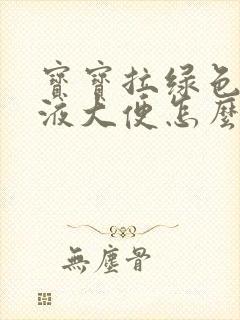 寶寶拉綠色
液大便怎麼
無塵骨